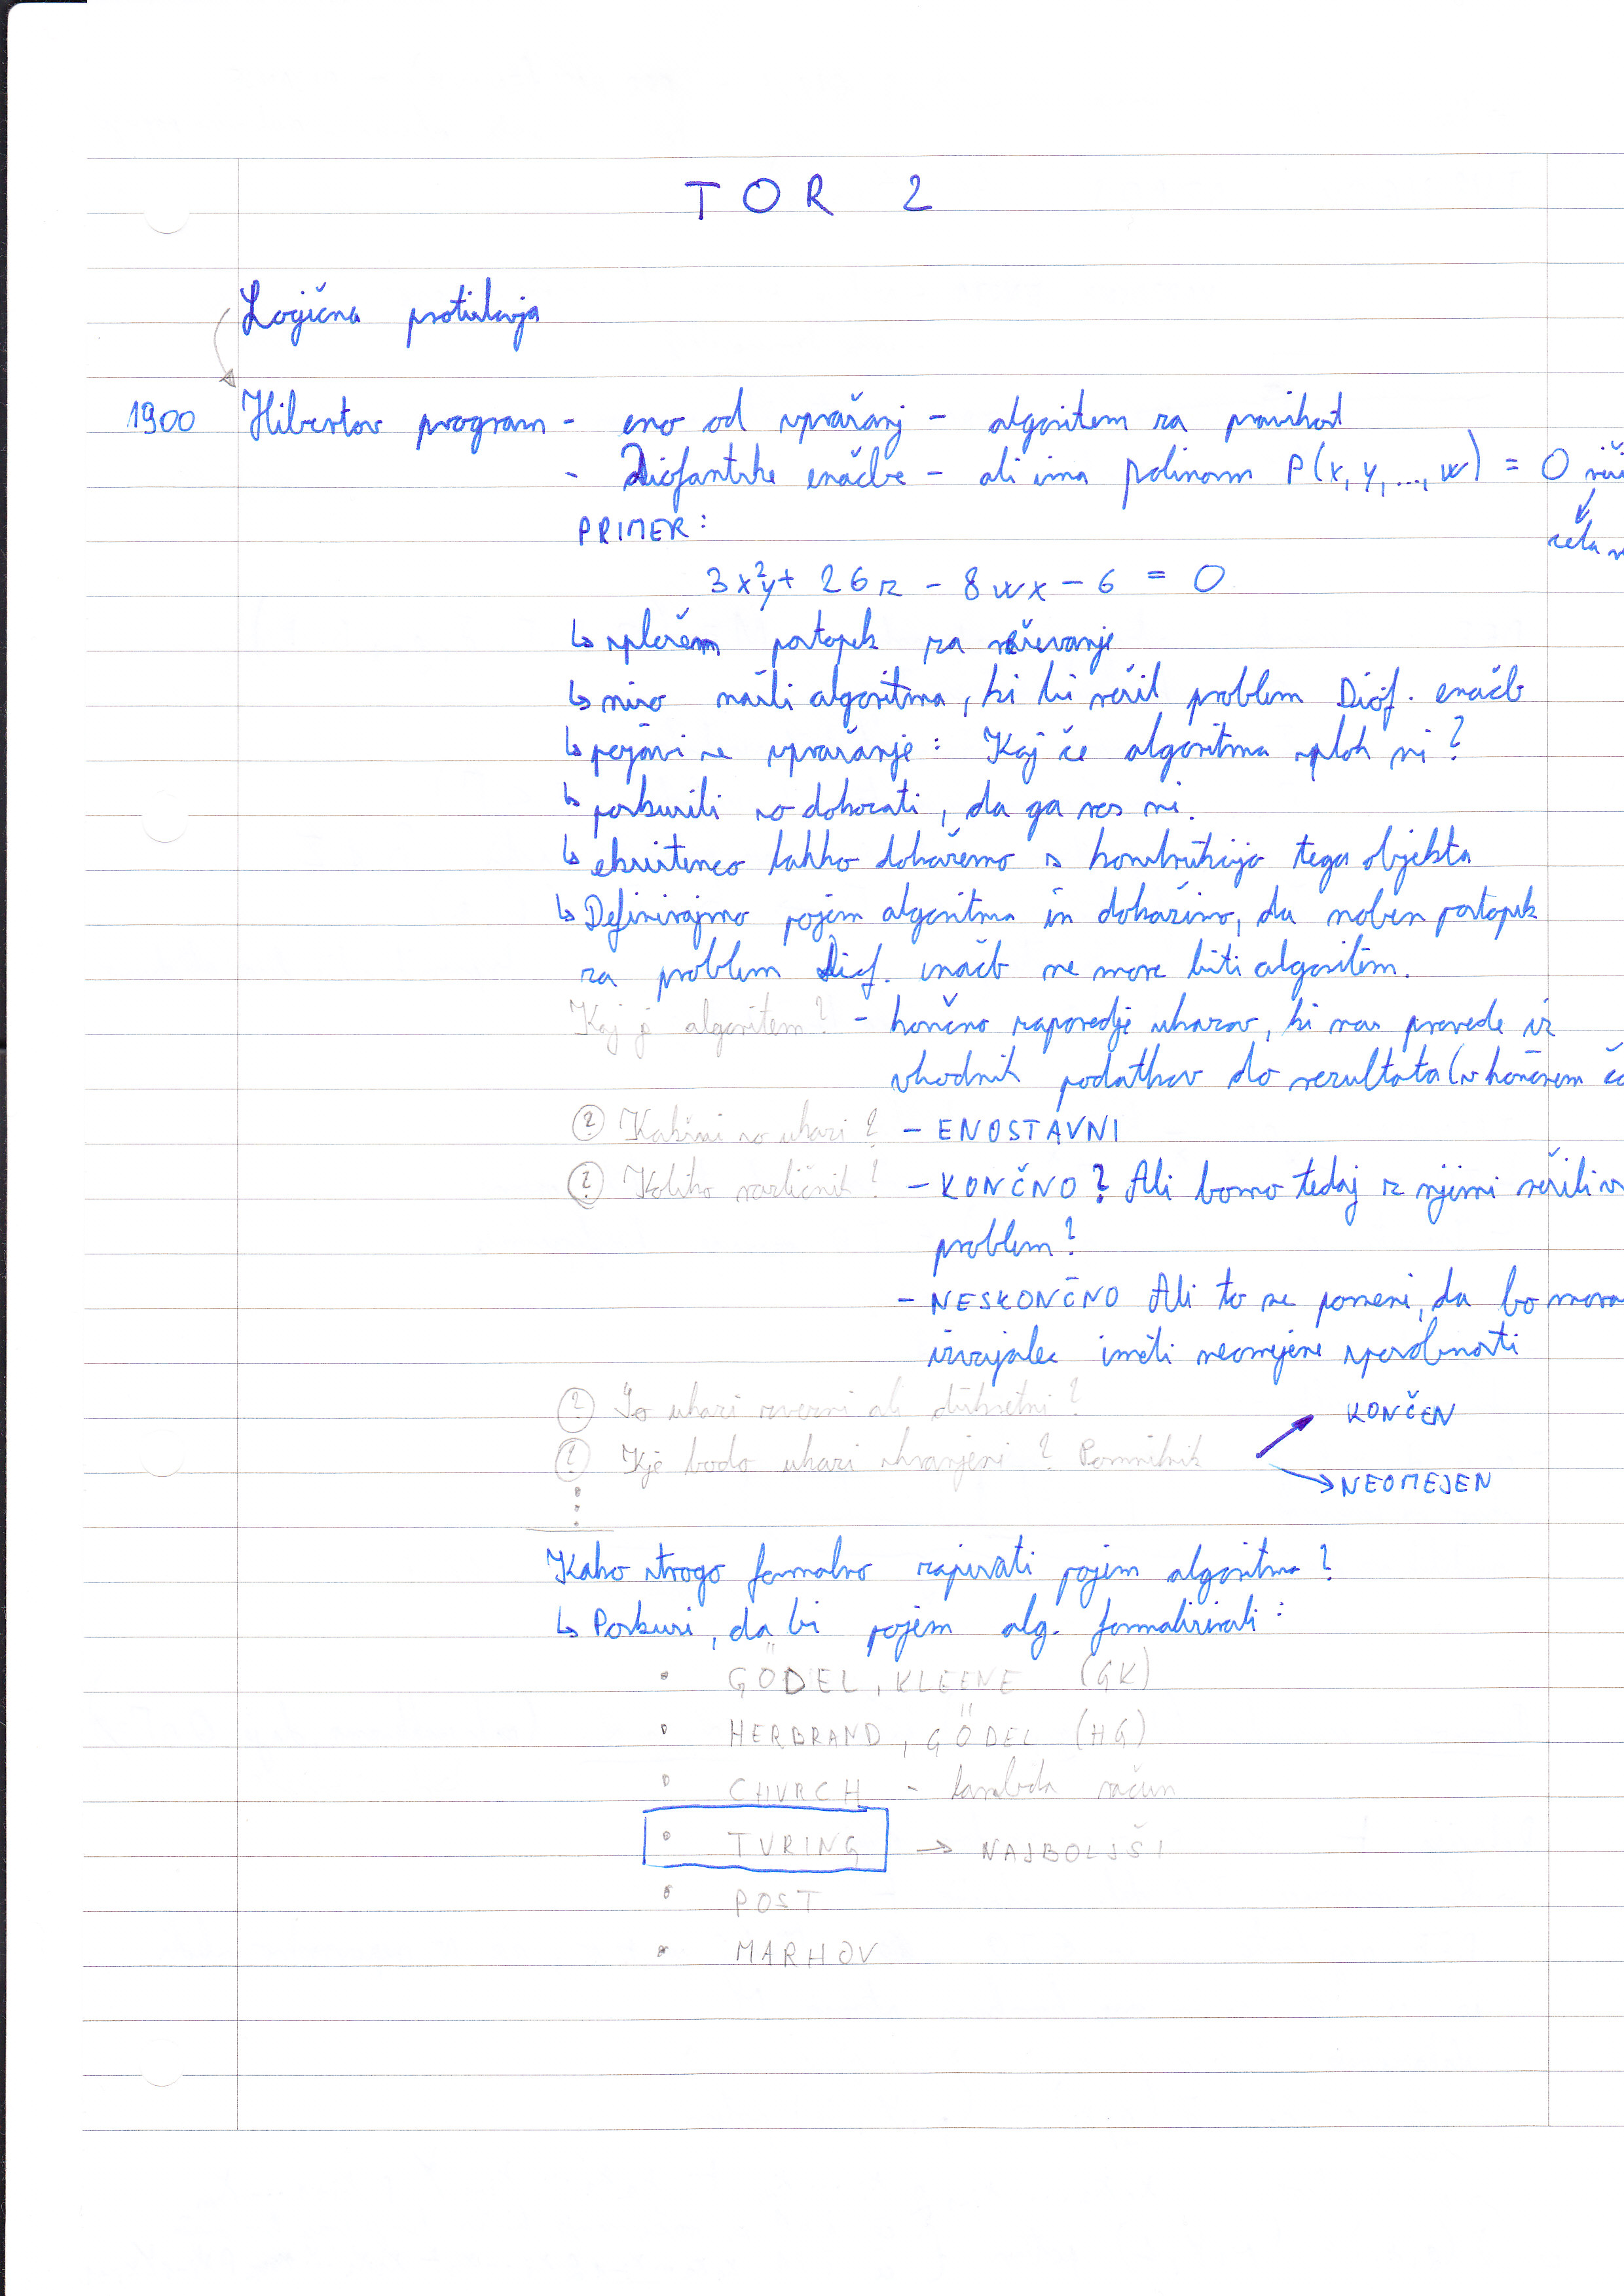 TOR 2
Logična protislovja
1900 Hilbertov program - eno od vprašanj - algoritem za pravilnost
- Diofantske enačbe - ali ima polinom P(x, y, ..., w) = 0
cela
PRIMER:
3x²y + 26z - 8wx - 6 = 0
↳ splošen postopek za reševanje
↳ niso našli algoritma, ki bi rešil problem Diof. enačb
↳ pojavi se vprašanje: Kaj če algoritma sploh ni?
↳ poskusili so dokazati, da ga res ni.
↳ eksistenco lahko dokažemo s konstrukcijo tega objekta
↳ Definirajmo pojem algoritma in dokažimo, da noben postopek
za problem Diof. enačb ne more biti algoritem.
Kaj je algoritem? - končno zaporedje ukazov, ki nas prevede iz
vhodnih podatkov do rezultata (v končnem
? Kakšni so ukazi? - ENOSTAVNI
? Koliko različnih? - KONČNO? Ali bomo tedaj z njimi rešili
problem?
- NESKONČNO Ali to ne pomeni, da bo
izvajalec imeti neomejene sposobnosti
? So ukazi zvezni ali diskretni?
KONČEN
? Kje bodo ukazi shranjeni? Pomnilnik
→ NEOMEJEN
Kako strogo formalno zapisati pojem algoritma?
↳ Poskusi, da bi pojem alg. formalizirali:
• GÖDEL, KLEENE (GK)
• HERBRAND, GÖDEL (HG)
• CHURCH - lambda račun
• TURING → NAJBOLJŠI
• POST
• MARKOV